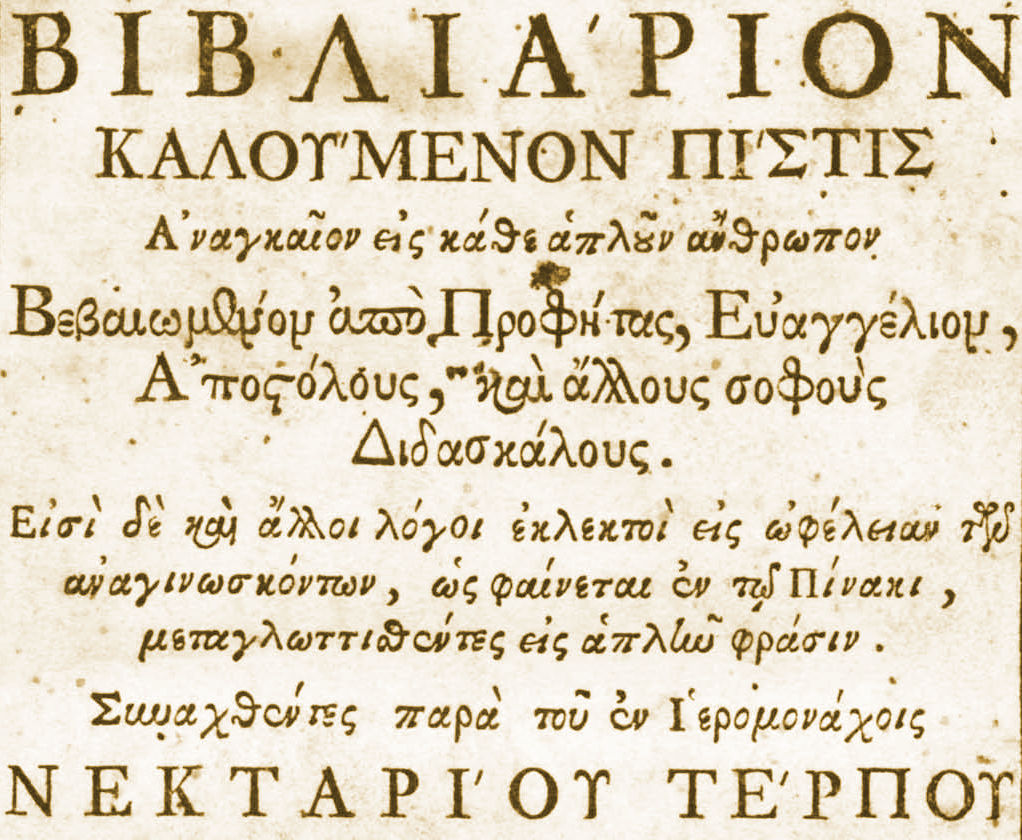 ΒΙΒΛΙΆΡΙΟΝ
ΚΑΛΟΎΜΕΝΟΝ ΠΊΣΤΙΣ
Ἀναγκαῖον εἰς κάθε ἁπλοῦν ἄνθρωπον
Βεβαιωμένον ἀπὸ Προφήτας, Εὐαγγέλιον,
Ἀποςόλους, καὶ ἄλλους σοφοὺς
Διδασκάλους.
Εἰσὶ δὲ καὶ ἄλλοι λόγοι ἐκλεκτοὶ εἰς ὠφέλειαν τῶν
ἀναγινωσκόντων, ὡς φαίνεται ἐν τῷ Πίνακι,
μεταγλωττισθέντες εἰς ἁπλῆν φράσιν.
Συναχθέντες παρὰ τοῦ ἐν Ἱερομονάχοις
ΝΕΚΤΑΡΊΟΥ ΤΈΡΠΟΥ